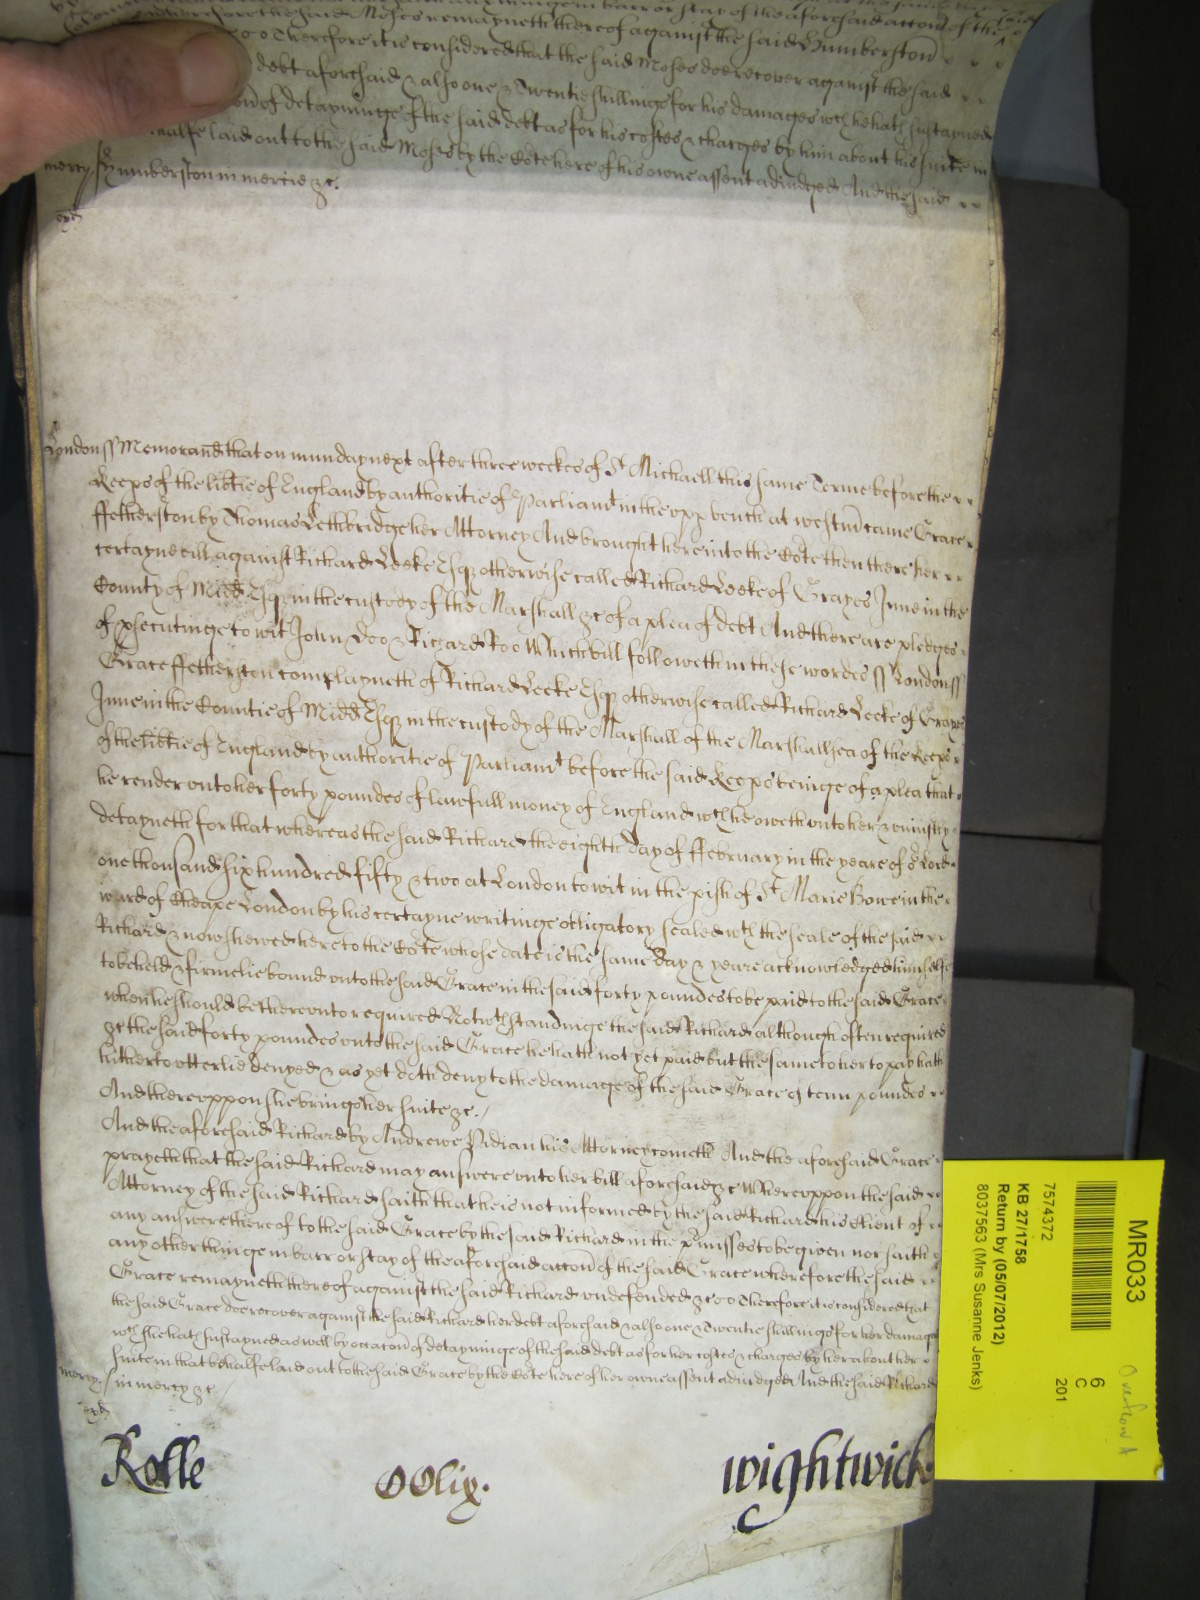 wherefore the said Moses remayneth thereof against the said Humberston
Therefore it is considered that the said Moses doe recover against the said
debt aforesaid & also one & Twentie shillings for his damages wch he hath sustayned
of detayninge of the said debt as for his costes & charges by him about his suite in
halfe laid out to the said Moses by the Cote here of his owne assent adiudged And the said
mercy. Humberston in mercie &c.
London ss Memorand that on munday next after three weekes of St Michaell this same Terme before the
Keeps of the libtie of England by authoritie of Parliamt in the upp bench at Westm came Grace
ffetherston by Thomas Lethbridge her Attorney And brought here into the Cote then there her
certayne bill against Richard Leeke Esqr otherwise called Richard Leeke of Grayes Inne in the
County of Midd Esqr in the custody of the Marshall &c of a plea of debt And there are pledges
of psecutinge to wit John Doo & Richard Roo Which bill followeth in these wordes ss London ss
Grace ffetherston complayneth of Richard Leeke Esqr otherwise called Richard Leeke of Grayes
Inne in the Countie of Midd Esqr in the custody of the Marshall of the Marshallsea of the Keeps
of the libtie of England by authoritie of Parliamt before the said Keeps beinge of a plea that
he render unto her forty poundes of lawfull money of England wch he oweth unto her & uniustly
detayneth for that whereas the said Richard the eighth day of ffebruary in the yeare of or Lord
one thousand six hundred fifty & two at London to wit in the pish of St Marie Bowe in the
ward of Cheape London by his certayne writinge obligatory sealed wth the seale of the said
Richard & now shewed here to the Cote whose date is the same day & yeare acknowledged himselfe
to be held & firmelie bound unto the said Grace in the said forty poundes to be paid to the said Grace
when he should be thereunto required Notwthstandinge the said Richard although often required
&c the said forty poundes unto the said Grace he hath not yet paid but the same to her to pay hath
hitherto utterlie denyed & as yet doth deny to the damage of the said Grace of tenn poundes
And thereuppon she brings her suite &c.
And the aforesaid Richard by Andrewe Vidian his Attorney cometh And the aforesaid Grace
prayeth that the said Richard may answere unto her bill aforesaid &c Whereuppon the said
Attorney of the said Richard saith that he is not informed by the said Richard his Client of
any answere thereof to the said Grace by the said Richard in the pmisses to be given nor saith
any other thinge in barr or stay of the aforesaid accon of the said Grace wherefore the said
Grace remayneth thereof against the said Richard undefended &c Therefore it is considered that
the said Grace doe recover against the said Richard her debt aforesaid & also one & Twentie shillings for her damages
wch she hath sustayned as well by occacon of detayninge of the said debt as for her costes & charges by her about her
suite in that behalfe laid out to the said Grace by the Cote here of her owne assent adiudged And the said Richard
mercy. in mercy &c.
Rolle
OOlix.
Wightwick
MR033
7574372
KB 27/1758
Return by (05/07/2012)
8037563 (Mrs Susanne Jenks)
6
C
201
Overflow A